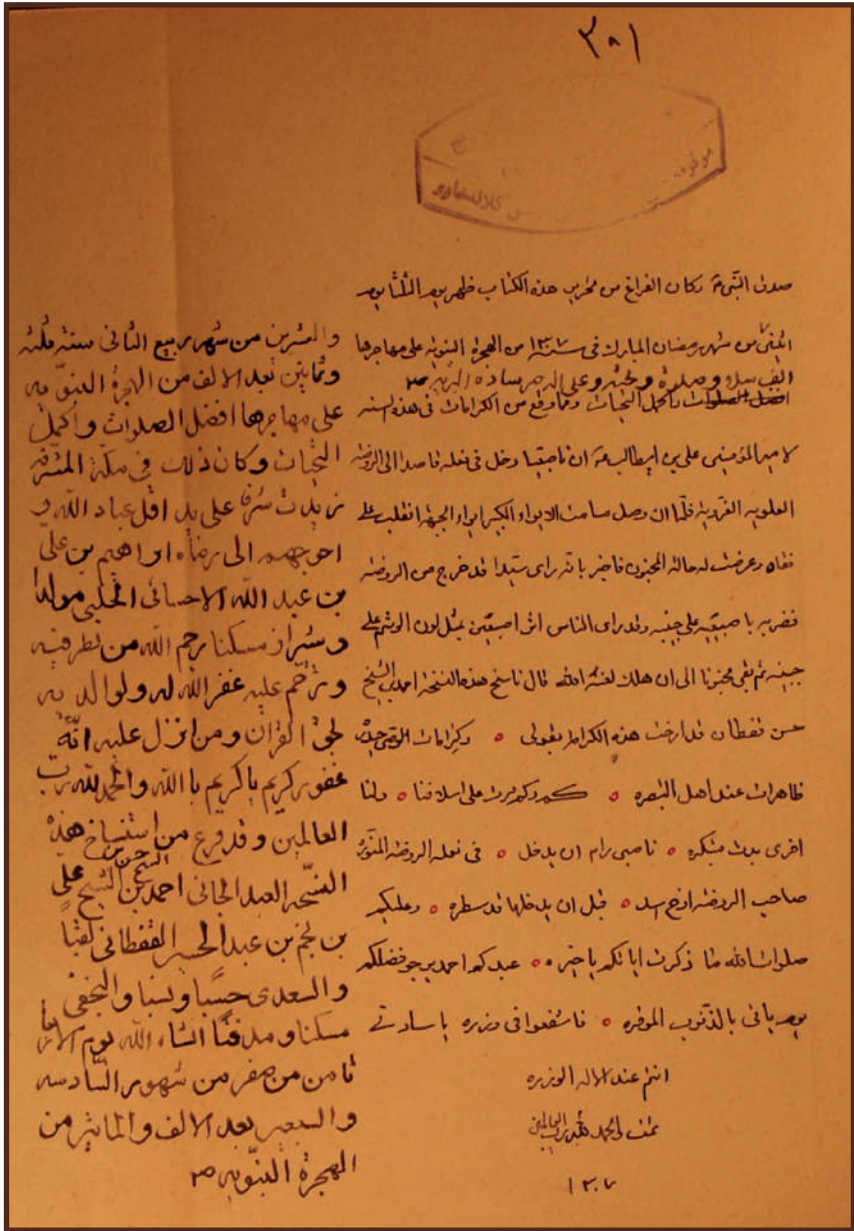 ٣٠١
موقوفه
صدق النبي ص وكان الفراغ من تحرير هذه الكتاب ظهر يوم الثلثا يوم
اثنين من شهر رمضان المبارك في سنة ١٣٠٧ من الهجرة النبوية على مهاجرها
الف سلام وصلوة وتحية وعلى اله
افضل الصلوات واكمل التحيات ومما وقع من الكرامات في هذه السنه
لامير المؤمنين علي بن ابيطالب ان ناصبيا دخل في نعله قاصدا الى الروضة
العلوية الغروية فلما ان وصل الايوان الكبير ايوان الجبهة انقلب على
قفاه وعرضت له حالة المجنون فاخبر بانه راى سيدا قد خرج من الروضة
فضربه باصبعيه على جبينه وقد راى الناس اثر اصبعين بمثل لون الوشم على
جبينه ثم بقى مجنونا الى ان هلك لعنه الله قال ناسخ هذه النسخة احمد بن الشيخ
حسن قفطان قد ارخت هذه الكرامة بقولي ه وكرامات الوصي حيدره
ظاهرات عند اهل التبصره ه كم وكم مرت على اسلافنا ه ولنا
اخرى بدت مبتكره ه ناصبي رام ان يدخل ه في نعله الروضة المنوره
صاحب الروضة ارخ اسد ه قبل ان يدخلها قد سطره ه وعليكم
صلوات الله ما ذكرت اياتكم يا خيره ه عبدكم احمد يرجو فضلكم
يوم ياتي بالذنوب الموقره ه فاشفعوا في وزره يا سادتي
انتم عند الاله الوزره
تمت والحمد لله رب العالمين
١٣٠٧
والعشرين من شهر ربيع الثاني سنة ثلثه
وثمانين بعد الالف من الهجرة النبويه
على مهاجرها افضل الصلوات واكمل
التحيات وكان ذلك في مكة المشرفة
زيدت شرفا على يد اقل عباد الله و
احوجهم الى رضاه ابراهيم بن علي
بن عبد الله الاحسائي الحلبي مولدا
وشيراز مسكنا رحم الله من نظر فيه
وترحم عليه غفر الله له ولوالديه
بحق القران ومن انزل عليه انه
غفور كريم يا كريم يا الله والحمد لله رب
العالمين وقد فرغ من استنساخ هذه
النسخه العبد الجاني احمد بن الشيخ حسن بن الشيخ علي
بن نجم بن عبد الحسين القفطاني لقبا
والسعدي حسبا ونسبا والنجفي
مسكنا ومدفنا انشاء الله يوم الاربعا
ثامن من صفر من شهور السادسه
والسبعين بعد الالف والماتين من
الهجرة النبويه